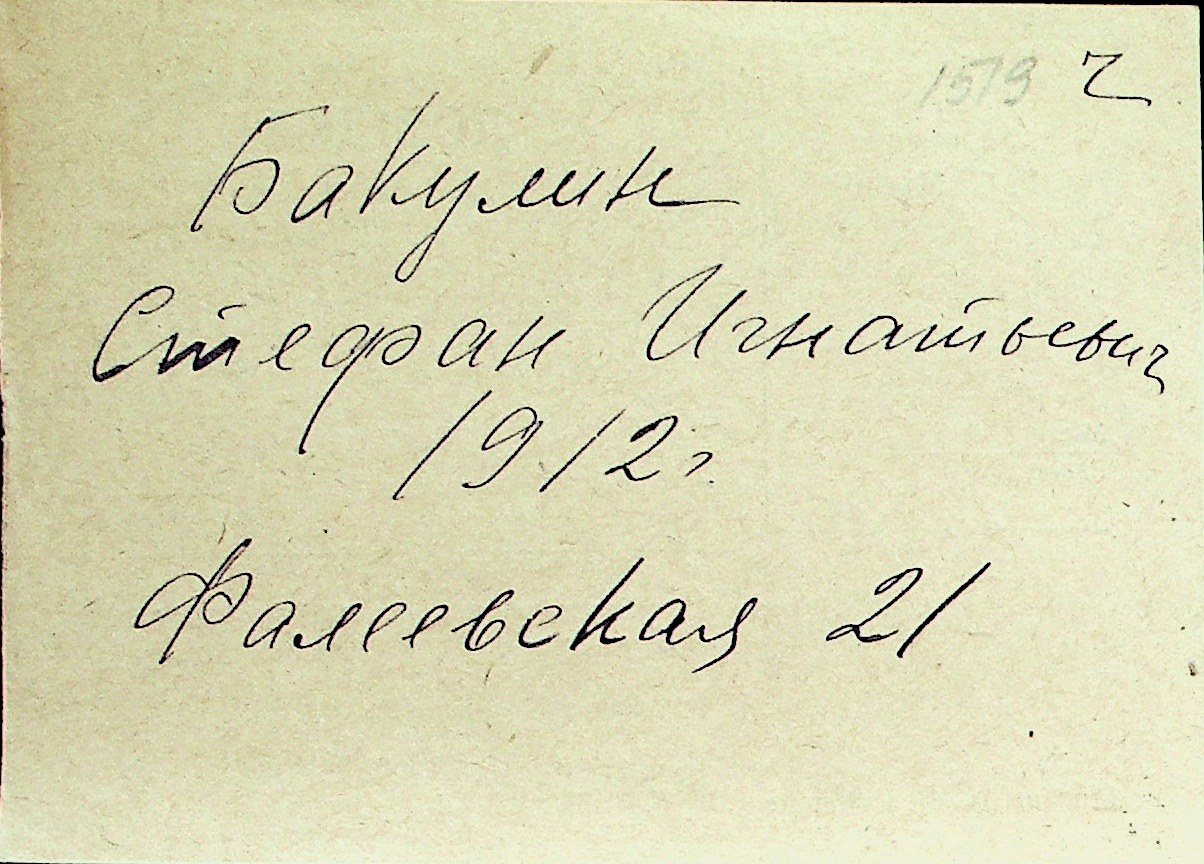 1579 ч
Бакулин
Стефан Игнатьевич
1912 г.
Фалеевская 21